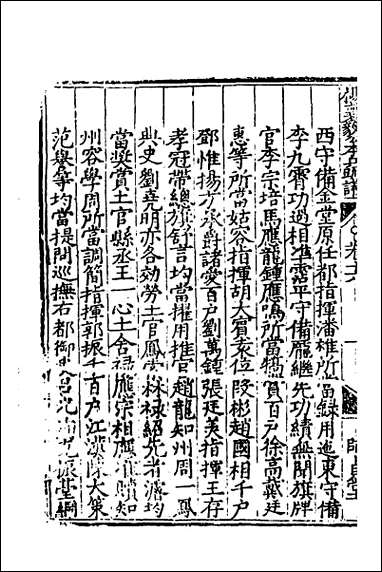 西守備金堂原任都指揮潘維所當錄用進東守備
李九霄功過相準霑平守備龐繼先功績無聞旗牌
官李宗培馬應龍鍾應鳴所當犒賞百戶徐高戴廷
惠等所當姑容指揮胡大賓袁位段彬趙國相千戶
鄧惟揚方承爵諸愛百戶劉萬鍾張廷美指揮王存
孝冠帶總旗舒言均當擢用推官趙龍知州周一鳳
典史劉堯明亦各効勞土官鳳 林祿紹先者濬均
當奬賞土官縣丞王一心土舍 應宗相應 贖知
州容學周所當調簡指揮郭振千百戶江漢陳大策
范舉等均當提問巡撫右都御史呂光洵 振堂綱
卷六